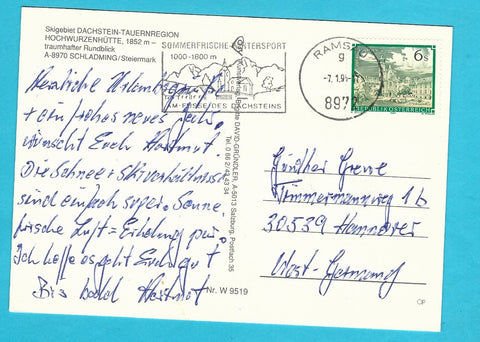 Skigebiet DACHSTEIN-TAUERNREGION
HOCHWURZENHÜTTE, 1852 m –
traumhafter Rundblick
A-8970 SCHLADMING/Steiermark
SOMMERFRISCHE-WINTERSPORT
1000-1800 m
AM FUSSE DES DACHSTEINS
RAMSAU
g
-7.1.9
897
6s
REPUBLIK ÖSTERREICH
Herzliche Urlaubsgrüße
+ ein frohes neues Jahr
wünscht Euch Hartmut.
Die Schnee + Skiverhältnisse
sind einfach super. Sonne
frische Luft = Erholung pur.
Ich hoffe es geht Euch gut
Bis bald Hartmut
DAVID-GRÜNDLER, A-5013 Salzburg, Postfach 35
Nr. W 9519
Günther Grewe
Timmermannweg 1b
30539 Hannover
West-Germany